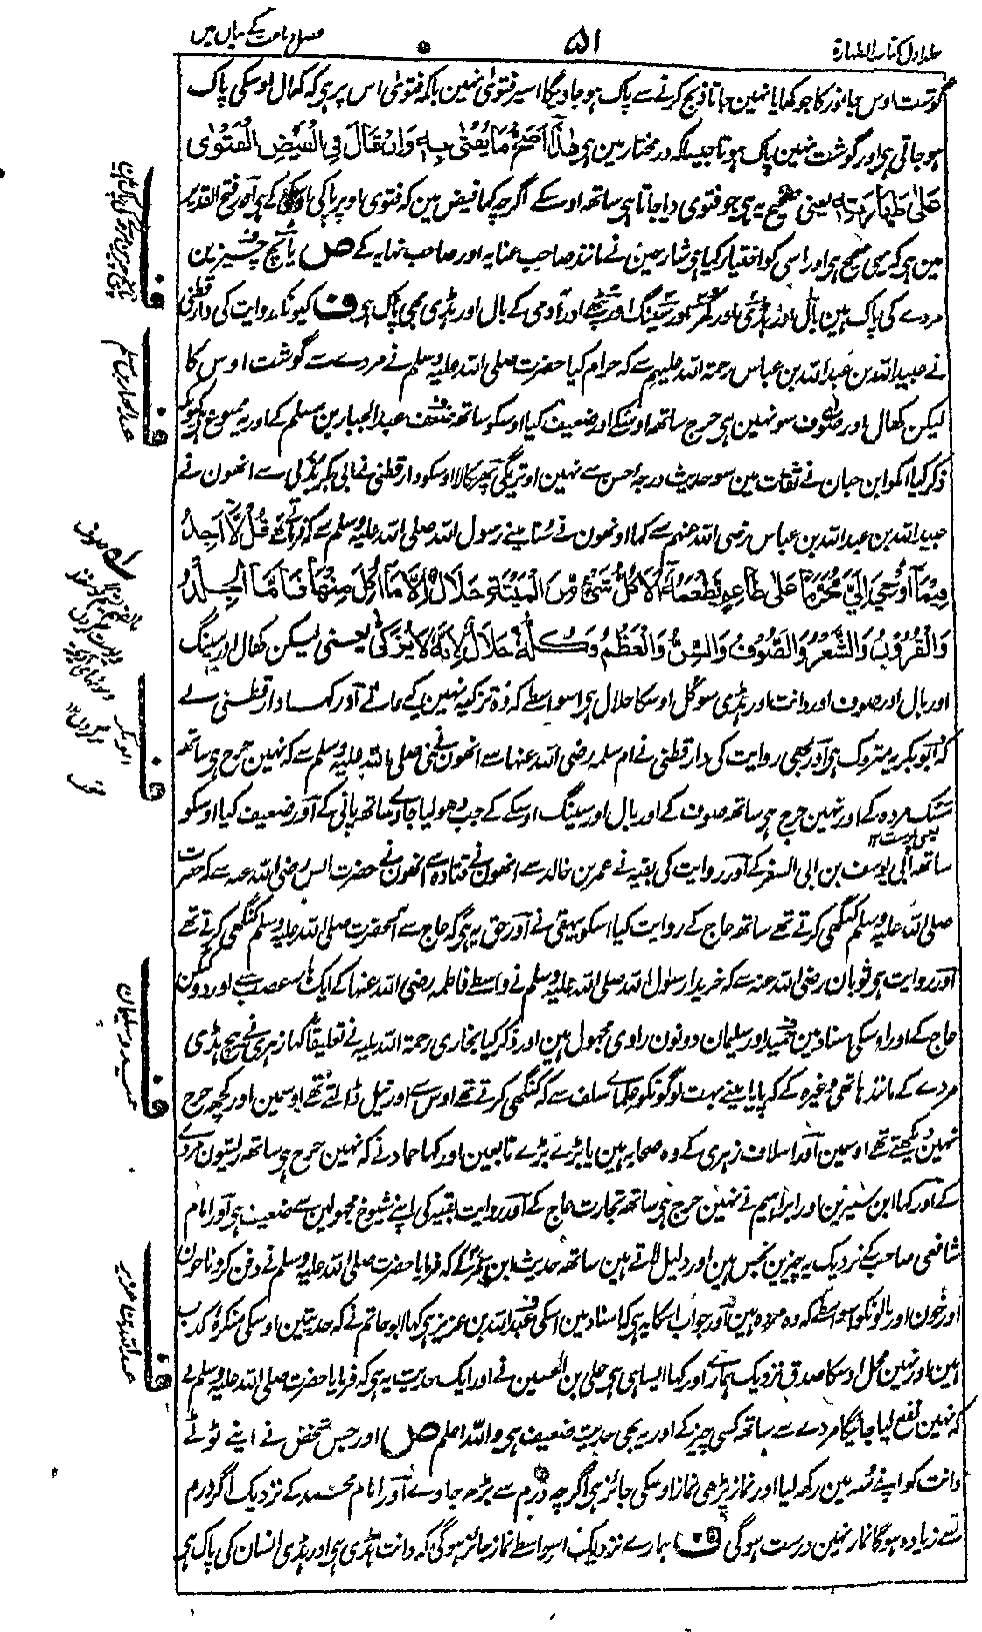 جلد اول کتاب الطہارۃ
۵۱
فصل دباغت کے بیان میں
گوشت اوس جانور کا جو کھایا نہین جاتا ذبح کرنے سے پاک ہو جاویگا اسپر فتوٰی نہین بلکہ فتوٰی اس پر ہی کہ کھال اوسکی پاک
ہو جاتی ہی اور گوشت نہین پاک ہوتا جیسا کہ در مختار مین ہی ھٰذَا اَصَحُّ مَا یُفْتٰی بِہٖ وَاِنْ قَالَ فِی الْفَیْضِ الْفَتْوٰی
عَلٰی طَھَارَتِہٖ یعنی صحیح یہ ہی جو فتوی دیا جاتا ہی ساتھ اوسکے اگرچہ کہا فیض مین کہ فتوی اوپر پاکی اوسکی کے ہی اور فتح القدیر
مین ہی کہ یہی صحیح ہی اور اسی کو اختیار کیا ہی شارحین نے مانند صاحب عنایہ اور صاحب نہایہ کے ص پانچ چیزین
مردے کی پاک ہین بال اور ہڈی اور کھر اور سینگ اور پٹھے اور آدمی کے بال اور ہڈی بھی پاک ہی ف کیونکہ روایت کی دارقطنی
نے عبید اللہ بن عبد اللہ بن عباس رحمۃ اللہ علیہم سے کہ حرام کیا حضرت صلی اللہ علیہ وسلم نے مردے سے گوشت اوس کا
لیکن کھال اور صوف سو نہین ہی حرج ساتھ اوسکے اور ضعیف کیا اوسکو ساتھ ضعف عبد الجبار بن مسلم کے اور یہ ممنوع ہی کیونکہ
ذکر کیا اوکو ابن حبان نے ثقات مین سو حدیث درجۂ حسن سے نہین اوتریگی پھر نکالا اوسکو دارقطنی نے ابی بکر ہذلی سے انھون نے
عبید اللہ بن عبد اللہ بن عباس رضی اللہ عنہم سے کہا اونھون نے سنا مینے رسول اللہ صلی اللہ علیہ وسلم سے کہ فرماتے تھے قُلْ لَّآ اَجِدُ
فِیْمَآ اُوْحِیَ اِلَیَّ مُحَرَّمًا عَلٰی طَاعِمٍ یَّطْعَمُہٗٓ اَلَا کُلُّ شَیْءٍ مِّنَ الْمَیْتَۃِ حَلَالٌ اِلَّا مَا اُکِلَ مِنْھَا فَاَمَّا الْجِلْدُ
وَالْقُرُوْنُ وَالشَّعْرُ وَالصُّوْفُ وَالسِّنُّ وَالْعَظْمُ فَکُلُّہٗ حَلَالٌ لِاَنَّہٗ لَا یُزَکّٰی یعنی لیکن کھال اور سینگ
اور بال اور صوف اور دانت اور ہڈی سو کل اوسکا حلال ہی اسواسطے کہ وہ تزکیہ نہین کیے جاتے اور کہا دارقطنی نے
کہ ابوبکر یہ متروک ہی اور بھی روایت کی دارقطنی نے ام سلمہ رضی اللہ عنہا سے انھون نے نبی صلی اللہ علیہ وسلم سے کہ نہین حرج ہی ساتھ
مشک مردہ کے اور نہین حرج ہی ساتھ صوف کے اور بال اور سینگ اوسکے کے جب دھو لیا جاوے ساتھ پانی کے اور ضعیف کیا اوسکو
یعنی پوست ۱۲
ساتھ ابی یوسف بن ابی السفر کے اور روایت کی بقیہ نے عمر بن خالد سے انھون نے قتادہ سے انھون نے حضرت انس رضی اللہ عنہ سے کہ حضرت
صلی اللہ علیہ وسلم کنگھی کرتے تھے ساتھ عاج کے روایت کیا اسکو بیہقی نے اور حق یہ ہی کہ عاج سے آنحضرت صلی اللہ علیہ وسلم کنگھی کرتے تھے
اور روایت ہی ثوبان رضی اللہ عنہ سے کہ خریدا رسول اللہ صلی اللہ علیہ وسلم نے واسطے فاطمہ رضی اللہ عنہا کے ایک ہار عصب سے اور دو کنگن
عاج کے اور اوسکی اسناد مین حمید اور سلیمان دونون راوی مجہول ہین اور ذکر کیا بخاری رحمۃ اللہ علیہ نے تعلیقًا کہا زہری نے بیچ ہڈی
مردے کے مانند ہاتھی وغیرہ کے کہ پایا مینے بہت لوگونکو علمائے سلف سے کہ کنگھی کرتے تھے اوس سے اور تیل ڈالتے تھے اوسمین اور کچھ حرج
نہین دیکھتے تھے اوسمین اور اسلاف زہری کے وہ صحابہ ہین یا بڑے بڑے تابعین اور کہا حماد نے کہ نہین حرج ہی ساتھ ریشون مردے
کے اور کہا ابن سیرین اور ابراہیم نے نہین حرج ہی ساتھ تجارت عاج کے اور روایت بقیہ کی اپنے شیوخ مجہولین سے ضعیف ہی اور امام
شافعی صاحب کے نزدیک یہ چیزین نجس ہین اور دلیل لاتے ہین ساتھ حدیث ابن عمر کے کہ فرمایا حضرت صلی اللہ علیہ وسلم نے دفن کرو ناخون
اور خون اور بالونکو اسواسطے کہ وہ مردہ ہین اور جواب اسکا یہ ہی کہ اسناد مین اسکی عبد اللہ بن عزیز ہی کہا ابو حاتم نے کہ حدیثین اوسکی منکر اور کذب
ہین اور نہین محل اوسکا صدق نزدیک ہمارے اور کہا ایسا ہی ہی علی بن الحسین نے اور ایک حدیث یہ ہی کہ فرمایا حضرت صلی اللہ علیہ وسلم نے
کہ نہین نفع لیا جائیگا مردے سے ساتھ کسی چیز کے اور یہ بھی حدیث ضعیف ہی واللہ اعلم ص اور جس شخص نے اپنے ٹوٹے
دانت کو اپنے منہ مین رکھ لیا اور نماز پڑھی نماز اوسکی جائز ہی اگرچہ درم سے بڑھ جاوے اور امام محمد کے نزدیک اگر درم
سے زیادہ ہوگا نماز نہین درست ہوگی ف ہمارے نزدیک اسواسطے نماز جائز ہوگی کہ دانت ہڈی ہی اور ہڈی انسان کی پاک ہی
ف
عبد الجبار بن مسلم
ف
ف
حمید و سلیمان
ف
عبد اللہ بن عزیز
ف